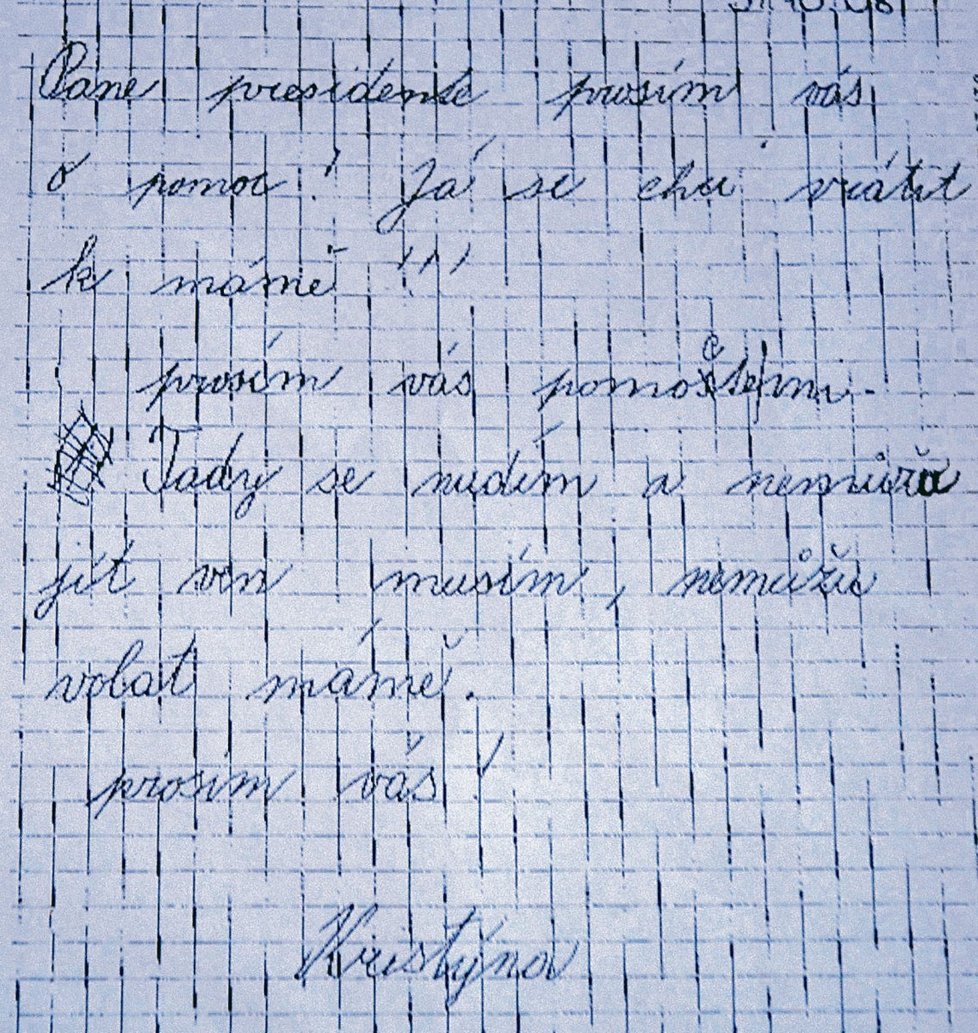 Pane presidente prosím vás
o pomoc! Já se chci vrátit
k mámě !!!
prosím vás pomoštemi.
Tady se nudím a nemůža
jít ven musím, nemůžu
volat mámě.
prosím vás!
Kristýna